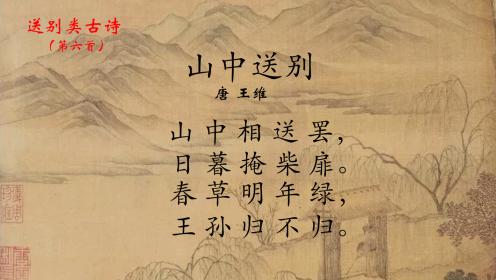 送别类古诗
（第六首）
山中送别
唐 王维
山中相送罢，
日暮掩柴扉。
春草明年绿，
王孙归不归。